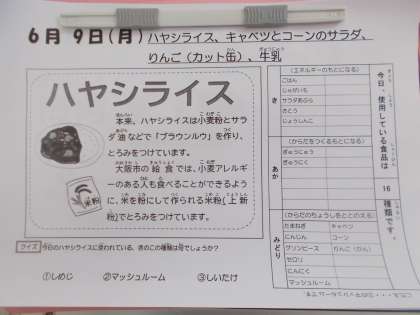 6月 9日(月) ハヤシライス、キャベツとコーンのサラダ、
りんご(カット缶)、牛乳
ハヤシライス
本来、ハヤシライスは小麦粉とサラ
ダ油などで「ブラウンルウ」を作り、
とろみをつけています。
大阪市の給食では、小麦アレルギ
ーのある人も食べることができるよう
に、米を粉にして作られる米粉(上新
粉)でとろみをつけています。
米粉
クイズ 今日のハヤシライスに使われている、きのこの種類は何でしょうか？
①しめじ ②マッシュルーム ③しいたけ
今日、使用している食品は
16
種類です。
き
(エネルギーのもとになる)
ごはん
じゃがいも
サラダあぶら
さとう
じょうしんこ
あか
(からだをつくるもとになる)
ぎゅうにゅう
ぎゅうにく
みどり
(からだのちょうしをととのえる)
たまねぎ キャベツ
にんじん コーン
グリンピース りんご(かん)
セロリ
にんにく
マッシュルーム